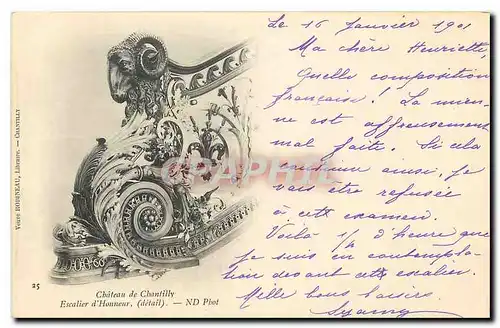 Le 16 Janvier 1901
Ma chère Henriette,
Quelle composition
française! La mien-
ne est affreusement
mal faite. Si cela
continue ainsi, je
vais être refusée
à cet examen.
Voilà 1/4 d'heure que
je suis en contempla-
tion devant cette escalier.
Mille bons baisers.
Veuve BODINEAU, Libraire. — CHANTILLY
25
Château de Chantilly
Escalier d'Honneur, (détail). — ND Phot